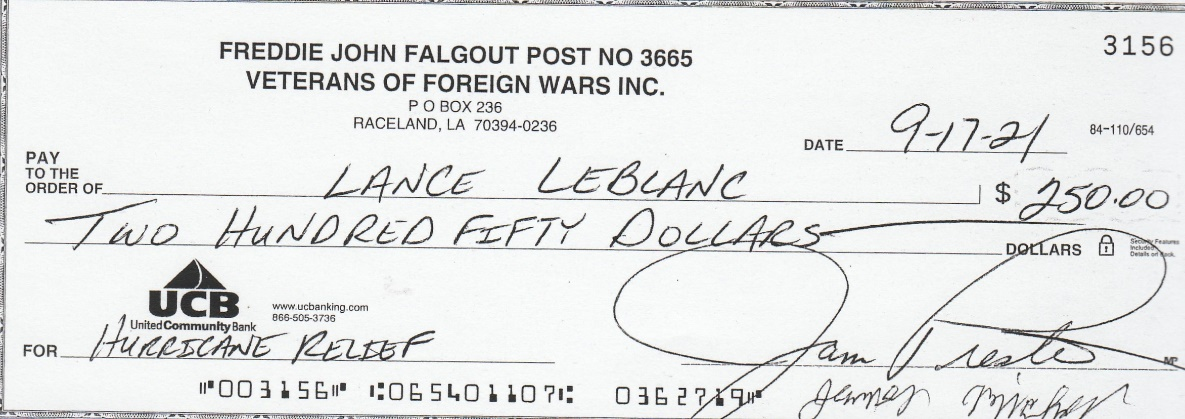 FREDDIE JOHN FALGOUT POST NO 3665
VETERANS OF FOREIGN WARS INC.
P O BOX 236
RACELAND, LA 70394-0236
3156
DATE 9-17-21
84-110/654
PAY TO THE ORDER OF LANCE LEBLANC $ 250.00
TWO HUNDRED FIFTY DOLLARS DOLLARS
Security Features Included. Details on Back.
UCB
United Community Bank
www.ucbanking.com
866-505-3736
FOR HURRICANE RELIEF
MP
⑈003156⑈ ⑆065401107⑆ 0362719⑈